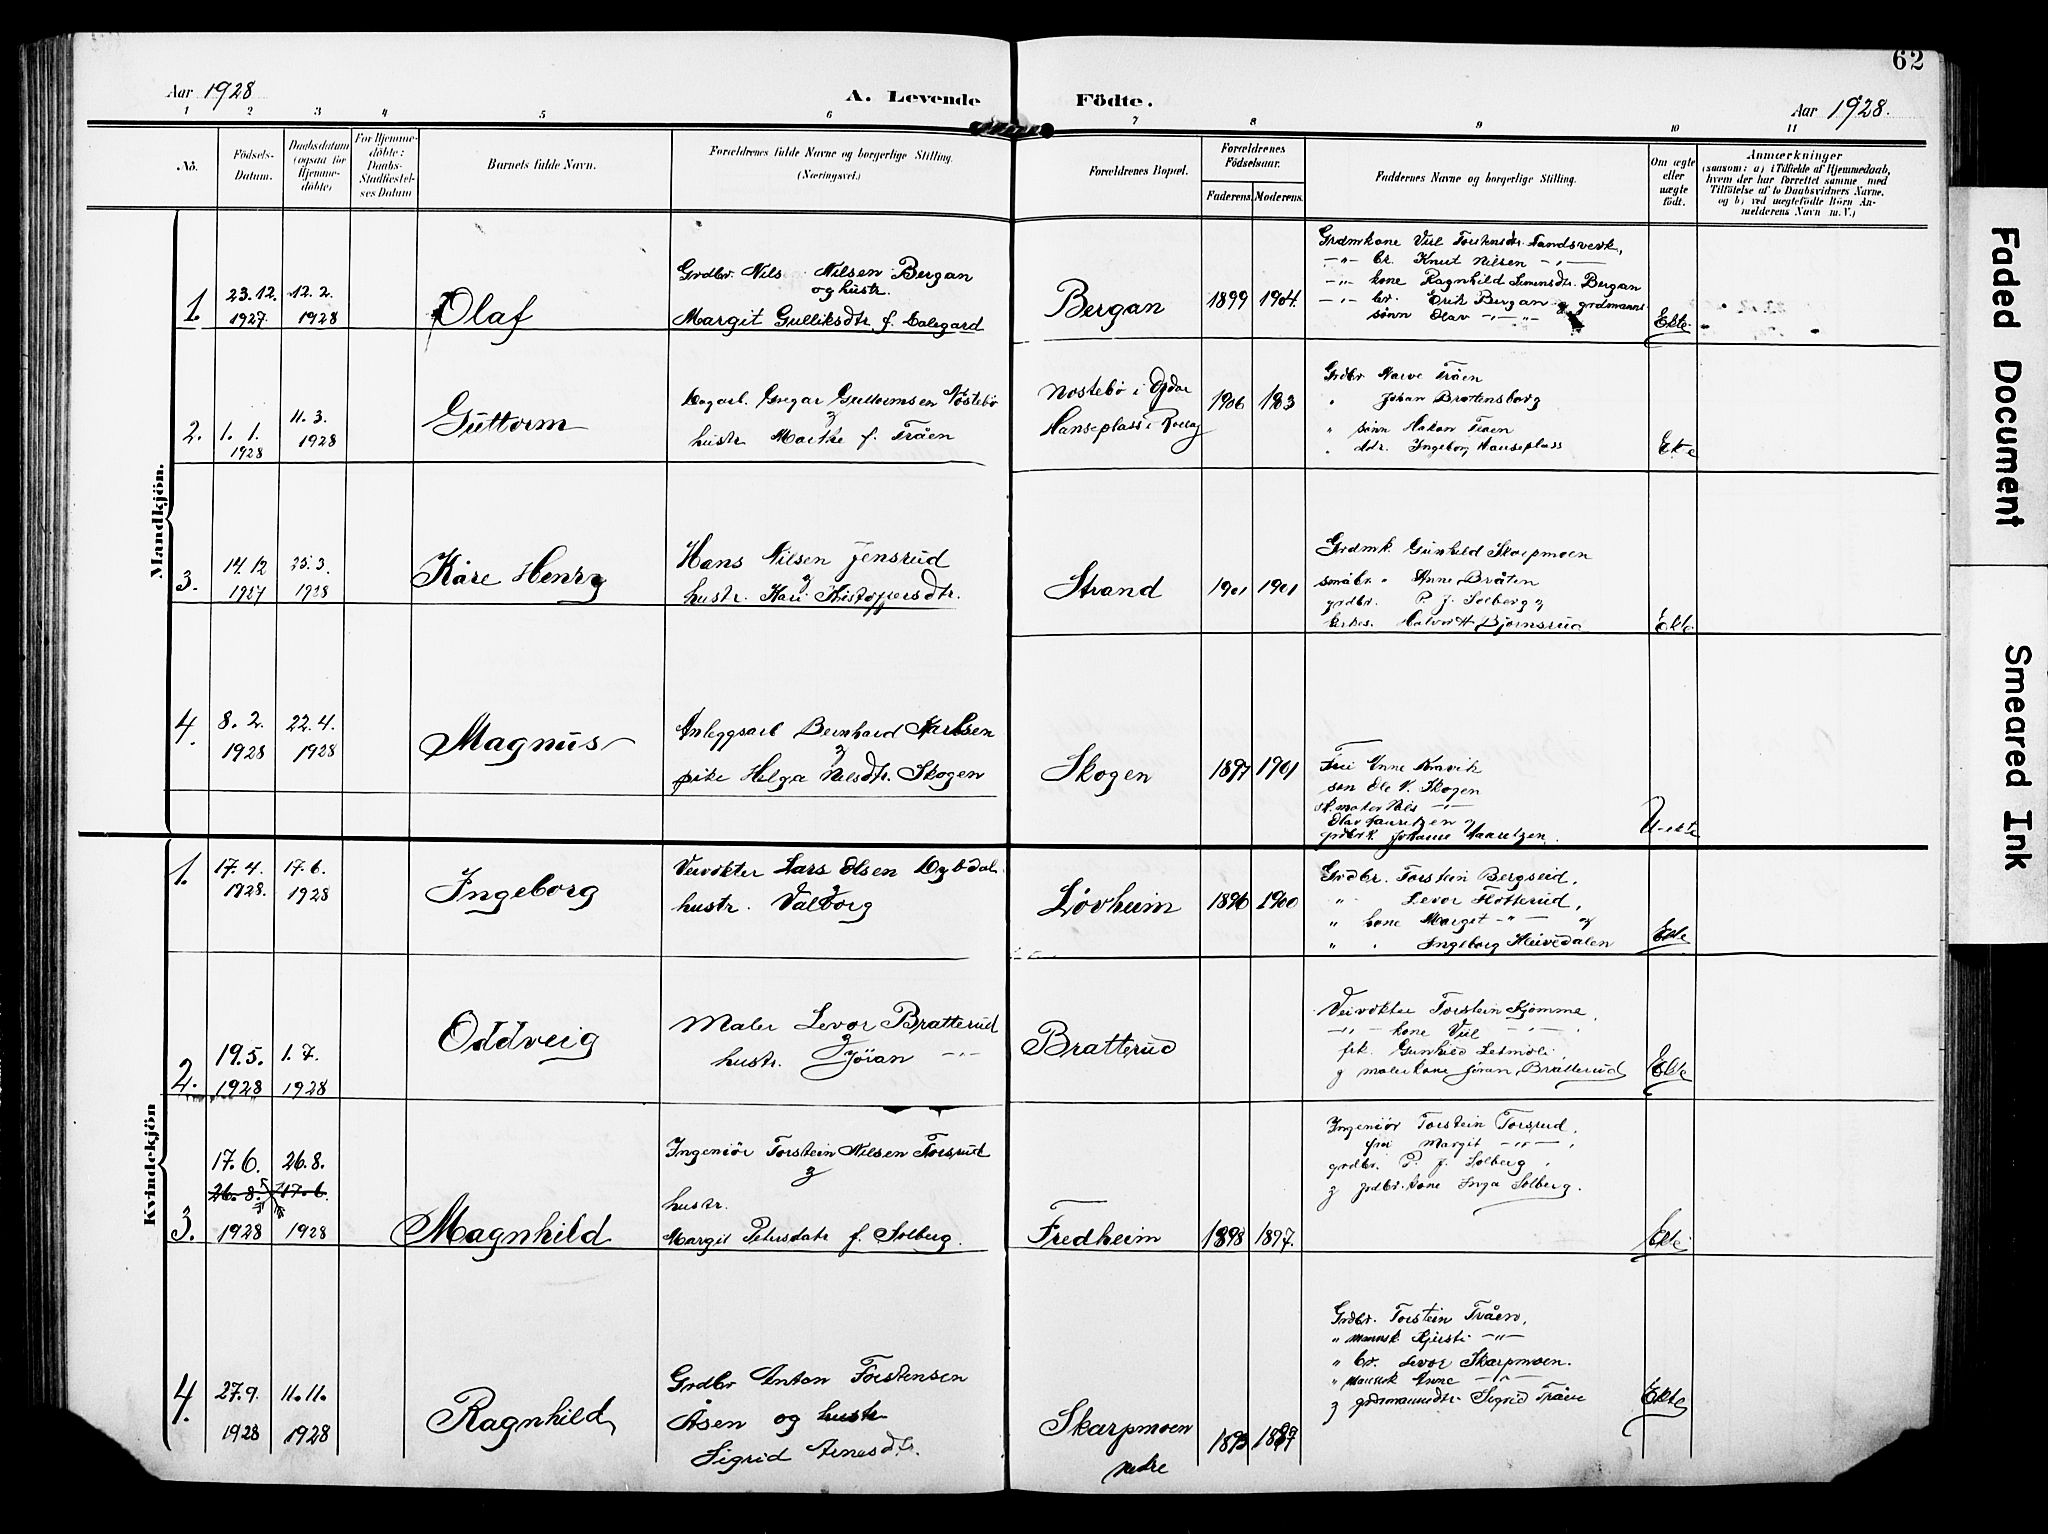 62
Aar 1928
A. Levende Födte.
Aar 1928.
1 2 3 4 5 6 7 8 9 10 11
No.
Födsels-
Datum.
Daabsdatum
(ogsaa for
Hjemme-
döbte)
For Hjemme-
döbte:
Daabs-
Stadfæstel-
ses Datum
Barnets fulde Navn.
Forældrenes fulde Navne og borgerlige Stilling.
(Næringsvei.)
Forældrenes Bopæl.
Forældrenes
Födselsaar.
Faderens. Moderens.
Faddernes Navne og borgerlige Stilling.
Om ægte
eller
uægte
födt.
Anmærkninger
(saasom: a) i Tilfælde af Hjemmedaab,
hvem der har forrettet samme med
Tilföielse af to Daabsvidners Navne.
og b) ved uægtefödte Börn An-
melderens Navn m. V.)
Mandkjön.
1.
23.12.
1927
12.2.
1928
Olaf
Grdbr. Nils Nilsen Bergan
og hustr.
Margit Gulliksdtr f.
Bergan
1899 1904.
Grdmkone Viel Torstensdtr. Tandsverk,
-"- br. Knut Nilsen -"-
-"- kone Ragnhild Simensdtr. Bergan
-"- br. Erik Bergan og grdmanns
sönn Olav -"-
Ekte
2.
1.1.
1928
11.3.
1928
Guttorm
Gregar Guttormsen Nöstebö
og
hustr. Marthe f. Tråen
Nostebö i Opdal
Hanseplass i Rollag
1906 1903
Grdbr Narve Tråen
" Johan Brattensborg
" sönn Håkon Traen
" dtr. Ingeborg Hanseplass
Ekte
3.
14.12
1927
25.3.
1928
Kåre Henry
Hans Nilsen Jensrud
og
hustr. Kari Kristoffersdtr.
Strand
1901 1901
Grdmk. Gunhild Skarpmoen
småbr. " Anne Bråten
grdbr. P. J. Solberg og
Halvor H Bjørnsrud
Ekte
4.
8.2.
1928
22.4.
1928
Magnus
Anleggsarb Bernhard Karlsen
og
pike Helga Nilsdtr. Skogen
Skogen
1897 1901
Frü Anne Kravik
søn Ole N. Skogen
sk.maker Nils -"-
Olav Lauritzen og
grdbr.k. Johanne
U-ekte
Kvindekjön
1.
17.4.
1928.
17.6.
1928
Ingeborg
Veivokter Lars Olsen
hustr. Valborg
Lövheim
1896 1900
Grdbr. Torstein Bergseid,
" Levor Flötterud,
" kone Marget -"- og
" " Ingeborg
Ekte
2.
19.5.
1928
1.7.
1928
Oddveig
Maler Levor Bratterud
og
hustr. Jöran -"-
Bratterud
Veivokter Torstein Kjömme,
-"- kone Viel -"-
frk. Gunhild Letmoli,
og malerkone Jöran Bratterud
Ekte
3.
17.6.
26.8.
1928
26.8.
17.6.
1928
Magnhild
Ingeniör Torstein Nilsen Forsrud
og
hustr.
Margit Petersdatr f. Solberg.
Fredheim
1898 1897.
Ingeniör Torstein Forsrud,
frü Margit -"-,
grdbr. P. J. Solberg,
og grdbr. kone Inga Solberg.
Ekte
4.
27.9.
1928
11.11.
1928
Ragnhild
Grdbr Anton Torstensen
Åsen og hustr
Sigrid Arnesdtr.
Skarpmoen
nedre
1893 1889
Grdbr. Torstein Tråen,
" Kjersti -"-
" br. Levor Skarpmoen.
" Anne -"-
og grdmannsdtr. Sigrid Tråen
Ekte
Faded Document
Smeared Ink